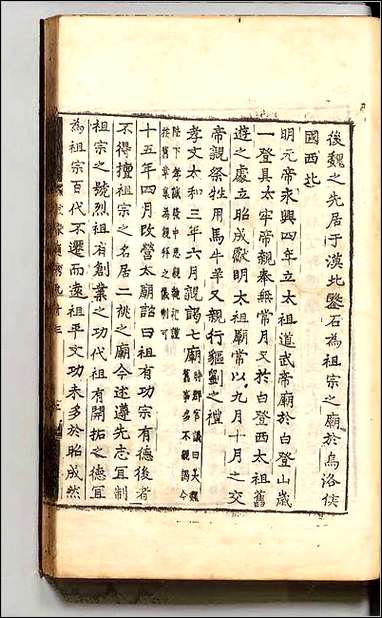 後魏之先居于漠北鑿石為祖宗之廟於烏洛侯
國西北
明元帝永興四年立太祖道武帝廟於白登山歲
一登具太牢帝親奉無常月又於白登西太祖舊
遊之處立昭成獻明太祖廟常以九月十月之交
帝親祭牲用馬牛羊又親行貙劉之禮
孝文太和三年六月親謁七廟時群官議曰大魏
舊事多不親謁今
陛下孝誠發中思親祀謹
按舊章集為親拜之儀制可
十五年四月改營太廟詔曰祖有功宗有德後者
不得擅祖宗之名居二祧之廟今述遵先志宜制
祖宗之號烈祖有創業之功代祖有開拓之德宜
為祖宗百代不遷而遠祖平文功未多於昭成然